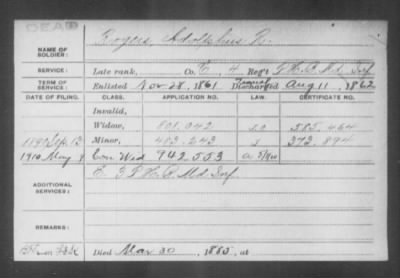 DEAD
NAME OF SOLDIER: Rogers, Adolphus R.
SERVICE: Late rank, Co. E, 4 Reg't P.H.B. Md. Inf.
TERM OF SERVICE: Enlisted Nov 28, 1861 Discharged Aug 11, 1862
DATE OF FILING. CLASS. APPLICATION NO. LAW. CERTIFICATE NO.
Invalid,
Widow, 801.042 585.464
1890 Sep. 13 Minor, 493.243 373.894
1910 May 9 Con Wid 942.553
ADDITIONAL SERVICES: E. 3 P.H.B. Md Inf
REMARKS:
Died Mar 30, 1885, at